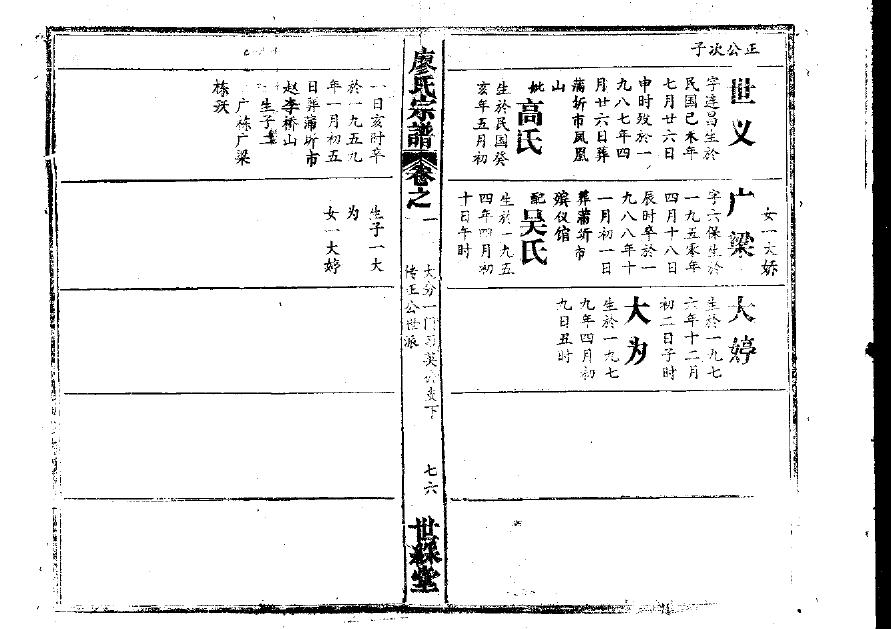 正公次子
世义
字连昌生於
民国己未年
七月廿六日
申时殁於一
九八七年四
月廿六日葬
蒲圻市凤凰
山
妣高氏
生於民国癸
亥年五月初
一日亥时卒
於一九五九
年一月初五
日葬蒲圻市
赵李桥山
生子
广栋广梁
女一大娇
广梁
字六保生於
一九五零年
四月十八日
辰时卒於一
九八八年十
一月初一日
葬蒲圻市
殡仪馆
配吴氏
生於一九五
四年四月初
十日午时
生子一大
为
女一大婷
大婷
生於一九七
六年十二月
初二日子时
大为
生於一九七
九年四月初
九日丑时
廖氏宗譜
卷之一
大分一门习英公支下
传正公世派
七六
世綵堂